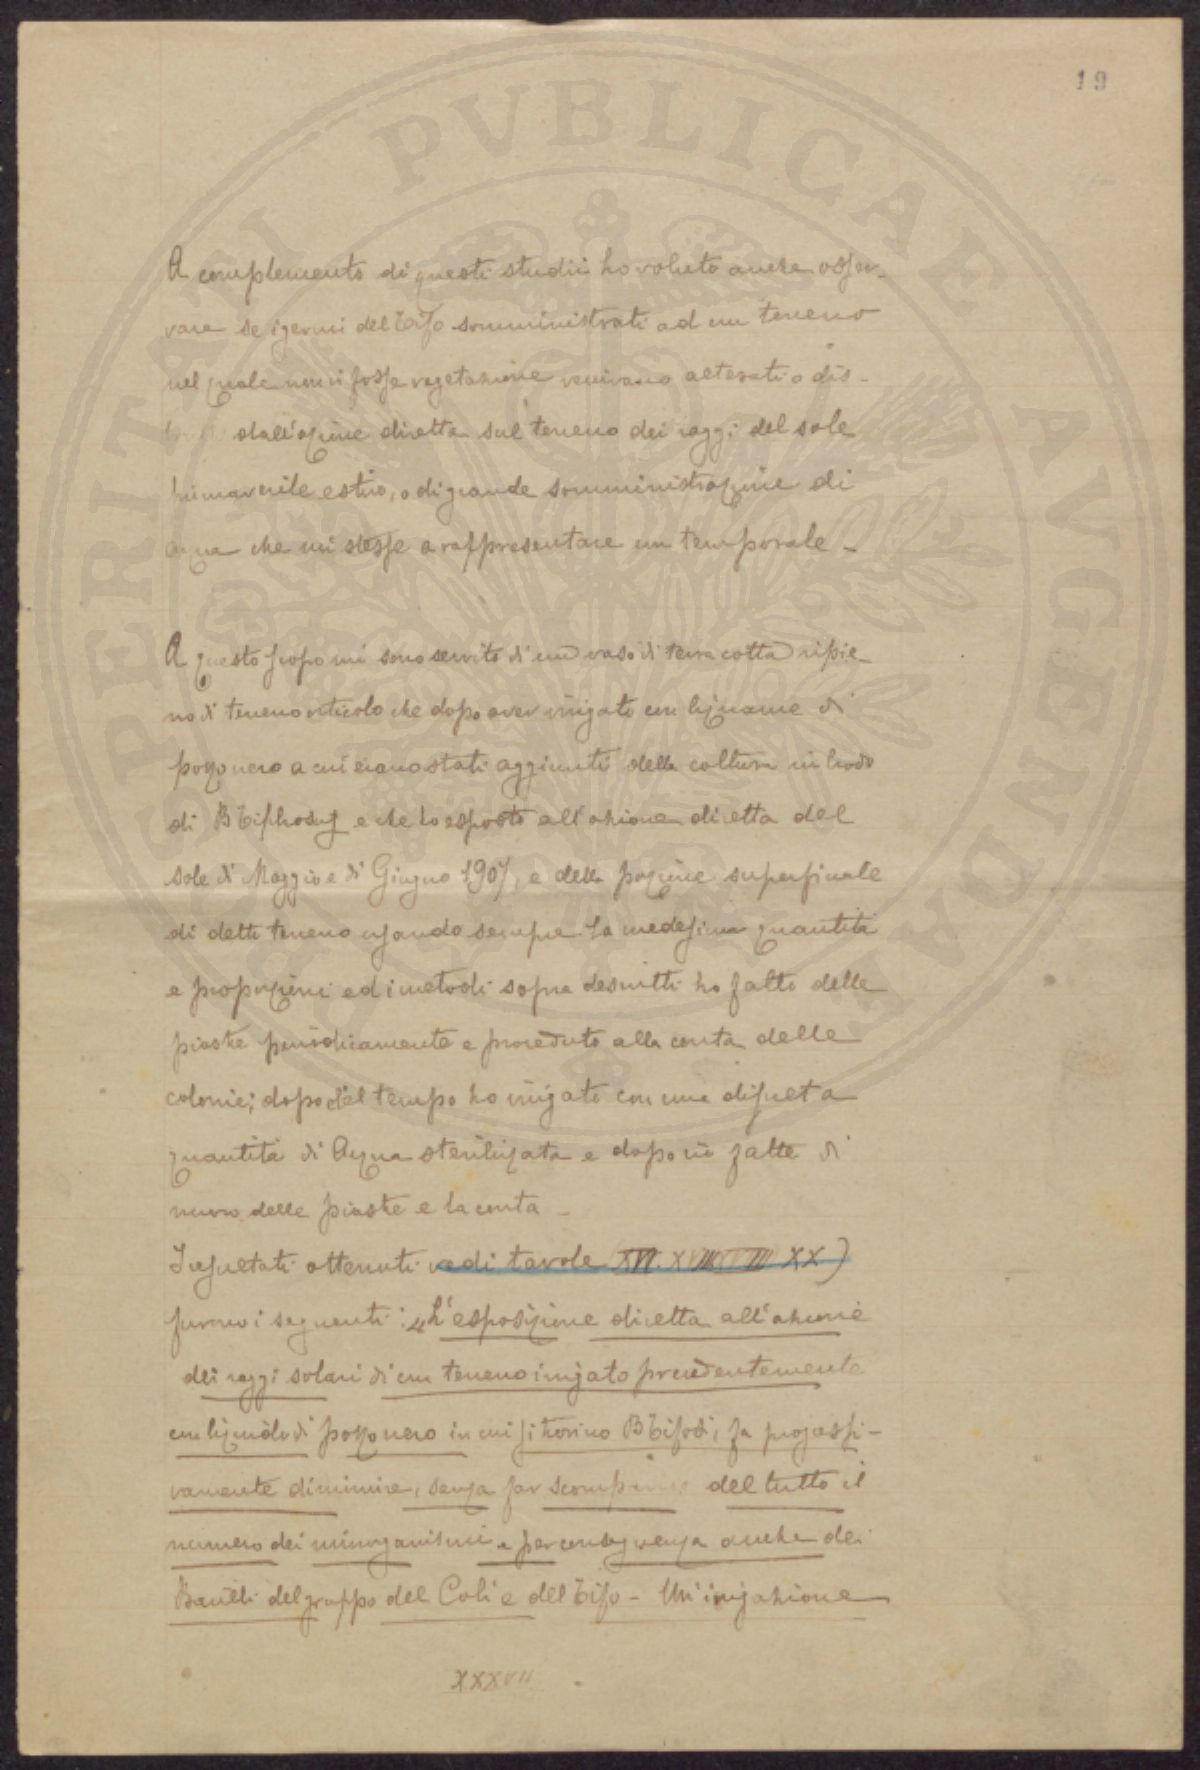 19
A complemento di questi studii ho voluto anche osser-
vare se i germi del Tifo somministrati ad un terreno
nel quale non vi fosse vegetazione venivano alterati o dis-
dall'azione diretta sul terreno dei raggi del sole
primaverile estivo, o di grande somministrazione di
acqua che mi stesse a rappresentare un temporale -
A questo scopo mi sono servito di un vaso di terra cotta ripie-
no di terreno orticolo che dopo aver irrigato con liquame di
pozzo nero a cui erano stati aggiunti della coltura in brodo
di B Tiphosus e che ho esposto all'azione diretta del
sole di Maggio e di Giugno 1907, e della porzione superficiale
di detto terreno usando sempre la medesima quantità
e proporzioni ed i metodi sopra descritti ho fatto delle
piastre periodicamente e proceduto alla conta delle
colonie; dopo del tempo ho irrigato con una discreta
quantità di Acqua sterilizzata e dopo ciò fatte di
nuovo delle piastre e la conta -
I risultati ottenuti vedi tavole (XVI. XX)
furono i seguenti: "L'esposizione diretta all'azione
dei raggi solari di un terreno irrigato precedentemente
con liquido di pozzo nero in cui si trovino B Tifosi, fa progressi-
vamente diminuire, senza far scomparire del tutto il
numero dei microrganismi e per conseguenza anche dei
Bacilli del gruppo del Coli e del Tifo - Un'irrigazione
XXXVII
SPERITATI PVBLICAE AVGENDAE